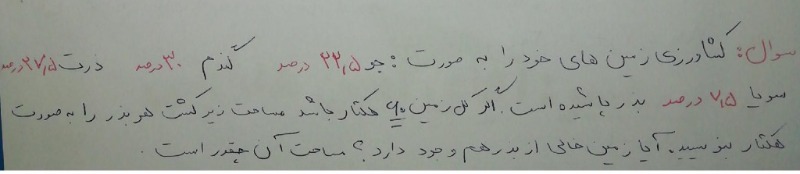 سوال: کشاورزی زمین های خود را به صورت: جو ۲۲٫۵ درصد گندم ۳۰ درصد ذرت ۳۷٫۵ درصد
سویا ۷٫۵ درصد بذر پاشیده است. اگر کل زمین ۶۰ هکتار باشد مساحت زیر کشت هر بذر را به صورت
هکتار بنویسید. آیا زمین خالی از بذر هم وجود دارد؟ مساحت آن چقدر است.